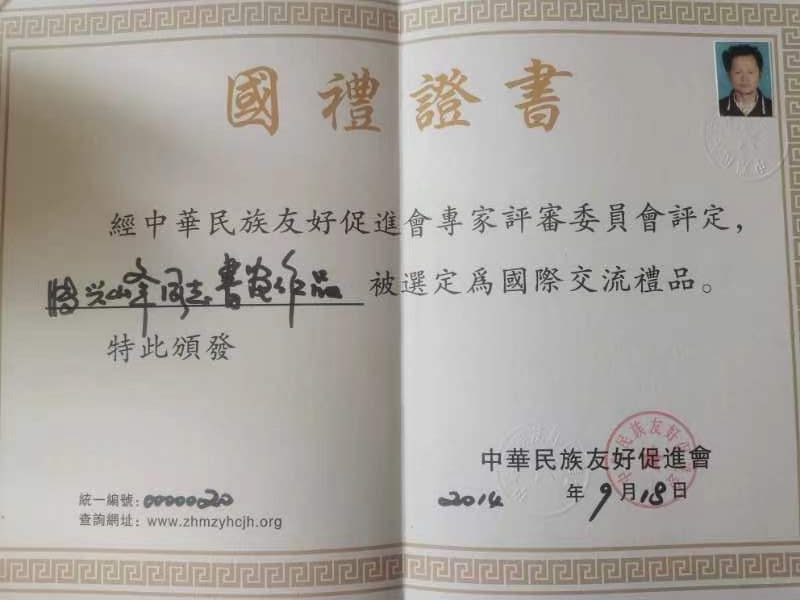 國禮證書
經中華民族友好促進會專家評審委員會評定,
同志書畫作品 被選定爲國際交流禮品。
特此頒發
中華民族友好促進會
統一編號:
2014年9月18日
查詢網址: www.zhmzyhcjh.org